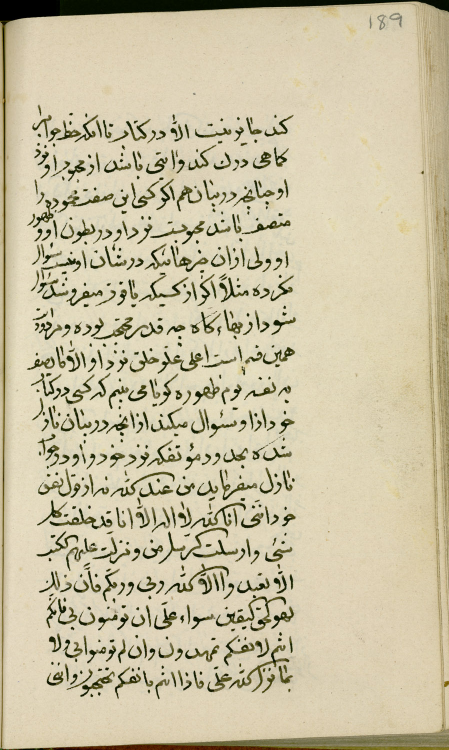 189
کند جایز نیست الا در کتاب تا آنکه حظ جواب
کما هی درک کند و آیتی باشد از محبوب او نزد
او چنانچه در بیان هم اگر کسی این صفت محبوبه را
متصف باشد محبوبست نزد او در بطون او و ظهور
او ولی از آن خبرهائیکه در شأن او نیست سؤال
نکرده مثلا اگر از کسیکه یاقوت میفروشد سؤال
شود از بهاء کاه چه قدر محتجب بوده و مردود
همین قسم است اعلی علو خلق نزد او الا ما یصف
به نفسه یوم ظهوره گویا می بینم که کسی در کتاب
خود از او سئوال میکند از آنچه در بیان نازل
شده بجد و مؤتفکه نزد خود و او در جواب
نازل میفرماید من عند الله نه از قول نفس
خود اننی انا الله لا اله الا انا قد خلقت کل
شیئ و ارسلت الرسل من و نزلت علیهم الکتب
الا تعبدوا الا الله ربی و ربکم فان ذلک
لهو الحق الیقین سواء علی ان تؤمنون بی فانکم
انتم لانفسکم تمهدون و ان لم تؤمنوا بی و لا
بما نزل الله علی فاذا انتم بانفسکم تحتجبون و اننی